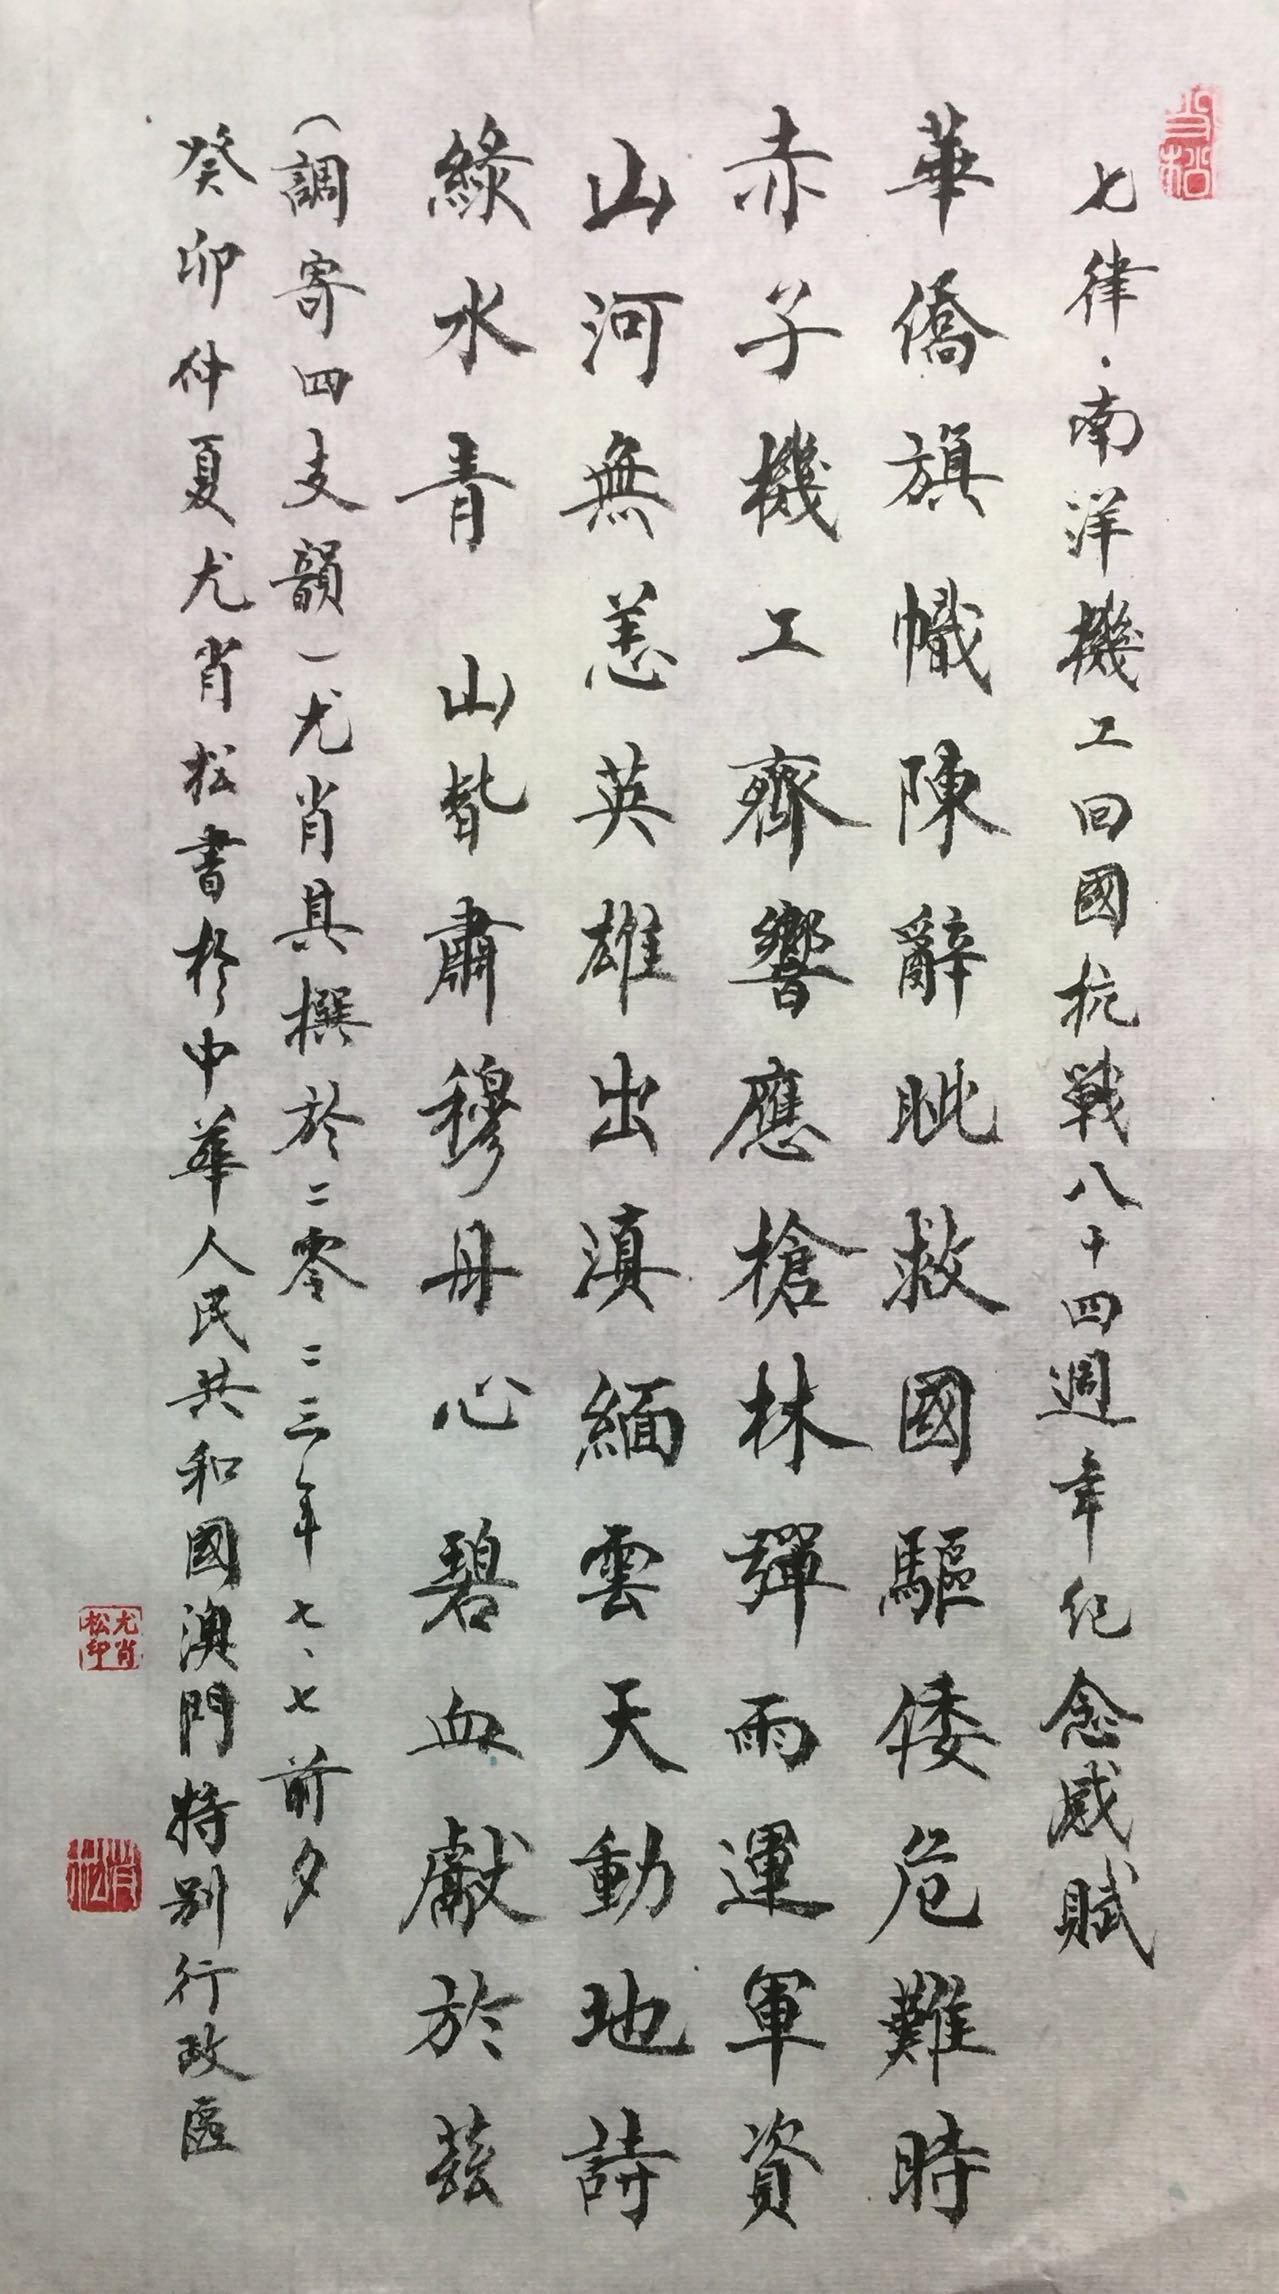 七律·南洋機工回國抗戰八十四週年纪念感賦
華僑旗幟陳辭眦救國驅倭危難時
赤子機工齊響應槍林彈雨運軍資
山河無恙英雄出滇緬雲天動地詩
綠水青山皆肅穆丹心碧血獻於茲
（調寄四支韻）尤肖具撰於二零二三年七、七前夕
癸卯仲夏尤肖松書於中華人民共和國澳門特别行政區
尤肖松印
肖松